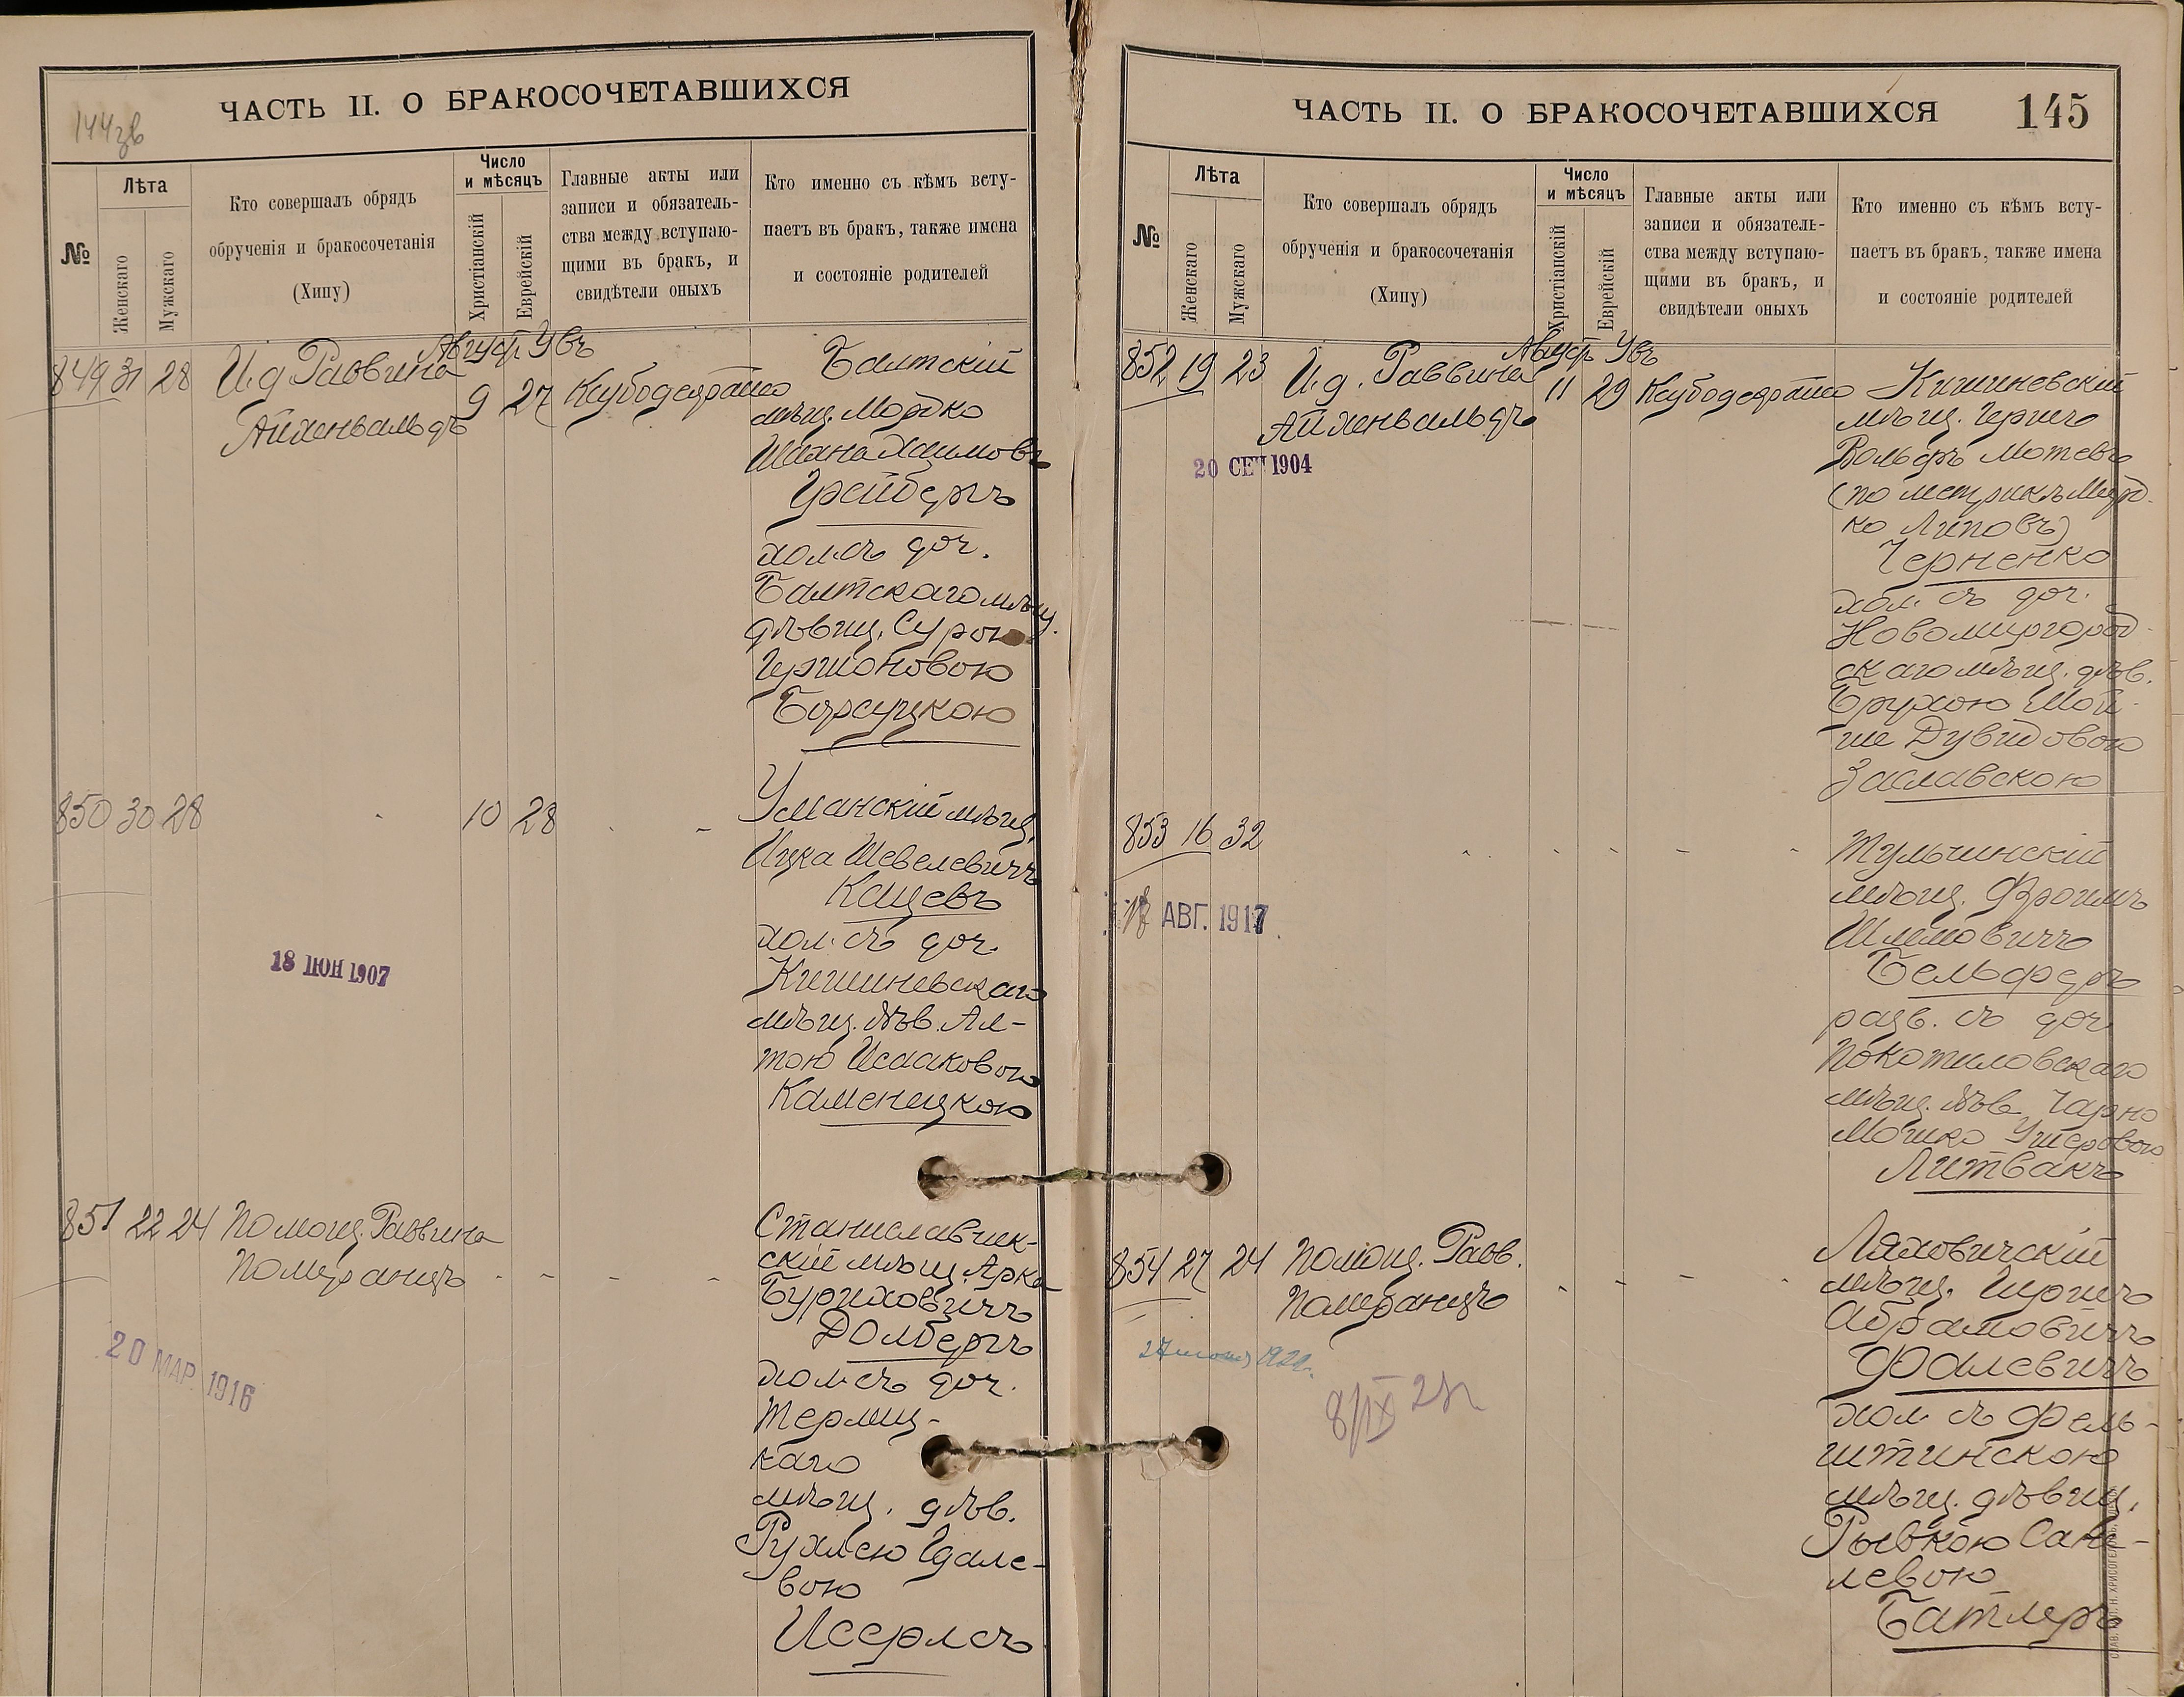 144 об
ЧАСТЬ II. О БРАКОСОЧЕТАВШИХСЯ
№
Лѣта
Женскаго
Мужскаго
Кто совершалъ обрядъ
обрученія и бракосочетанія
(Хипу)
Число
и мѣсяцъ
Христіанскій
Еврейскій
Главные акты или
записи и обязатель-
ства между вступаю-
щими въ бракъ, и
свидѣтели оныхъ
Кто именно съ кѣмъ всту-
паетъ въ бракъ, также имена
и состояніе родителей
Август Увъ
849 31 28 И. д Раввина 9 27
Айхенвальдъ
Балтскій
мѣщ. Мордко
Шахна Хаимовъ
Грейбергъ
хол. съ доч.
Балтскаго мѣщ.
дѣвиц. Сурою
Гершоновою
Борсуцкою
850 30 28 10 28
Уманскій мѣщ.
Ицка Шевелевичъ
Кацевъ
хол. съ доч.
Кишиневскаго
мѣщ. дѣв. Ал-
тою Исааковою
Каменецкою
18 ІЮН 1907
851 22 24 Помощ. Раввина
Померанцъ
Станиславчик-
скій мѣщ. Арка
Бурихович
Долбергъ
хол. съ доч.
Терлиц-
каго
мѣщ. дѣв.
Рухлею Гдале-
вою
Иссерлесъ
20 МАР. 1916
ЧАСТЬ II. О БРАКОСОЧЕТАВШИХСЯ
145
№
Лѣта
Женскаго
Мужскаго
Кто совершалъ обрядъ
обрученія и бракосочетанія
(Хипу)
Число
и мѣсяцъ
Христіанскій
Еврейскій
Главные акты или
записи и обязатель-
ства между вступаю-
щими въ бракъ, и
свидѣтели оныхъ
Кто именно съ кѣмъ всту-
паетъ въ бракъ, также имена
и состояніе родителей
Август Увъ
852 19 23 И. д. Раввина 11 29
Айхенвальдъ
20 СЕН 1904
Кишиневскій
мѣщ. Герш
Вольфъ Мотевъ
(по метрикѣ Морд-
ко Липовъ)
Черненко
хол. съ доч.
Новомиргород-
скаго мѣщ. дѣв.
Брухою Мой-
ше Дувидовою
Заславскою
853 16 32
18 АВГ. 1917
Тульчинскій
мѣщ. Фроимъ
Шлемовичъ
Бельферъ
разв. съ доч.
Покотиловскаго
мѣщ. дѣв. Чарно
Мошко Ушеровою
Литвакъ
854 27 24 Помощ. Равв.
Померанцъ
8/IX 28г
Ляховичскій
мѣщ. Гиршъ
Абрамовичъ
Фалевичъ
хол. съ Фель-
штинскою
мѣщ. дѣвиц.
Рывкою Сане-
левою
Батлеръ